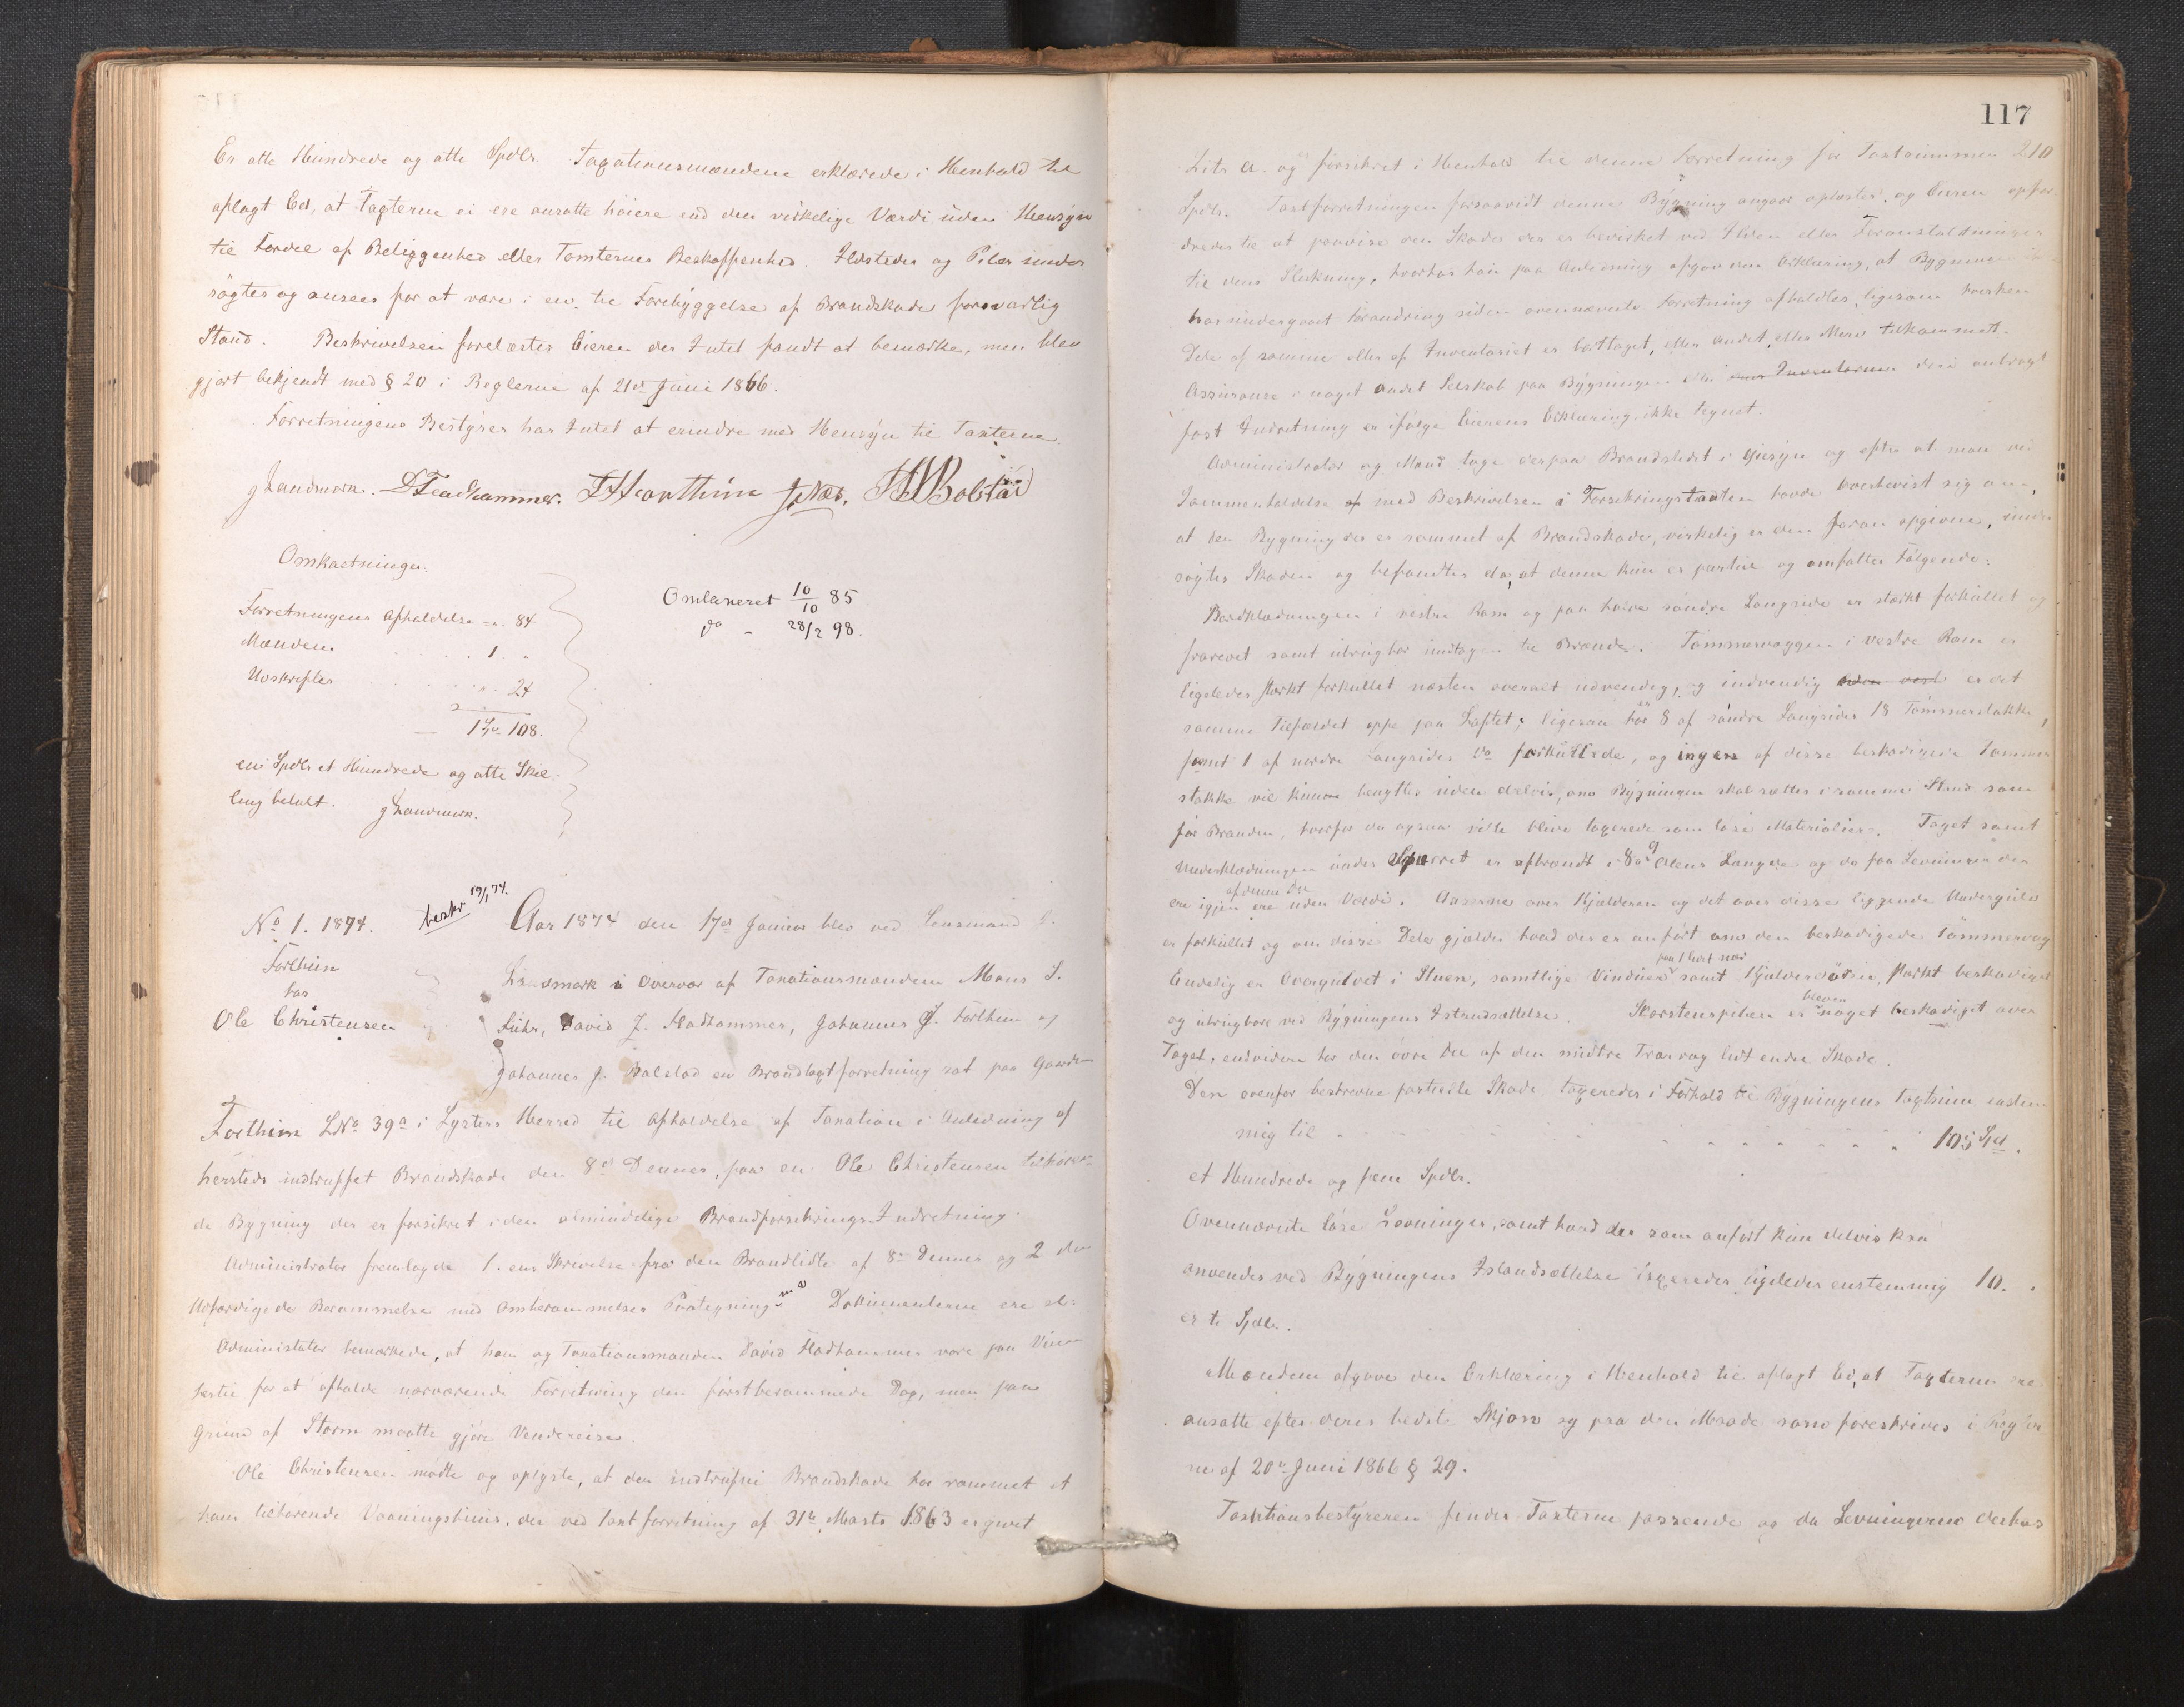 Er otte Hundrede og otte Spdlr. Taxationsmændene erklærede i Henhold til
aflagt Ed, at Taxterne ei ere ansatte höiere end den virkelige Værdi uden Hensyn
til Fordel af Beliggenhed eller Tomternes Beskaffenhed. Ildsteder og Piber under
sögtes og ansees for at være i en, til Forebyggelse af Brandskade forsvarlig
Stand. Beskrivelsen forelæstes Eieren der Intet fandt at bemærke, men blev
gjort bekjendt med § 20 i Reglerne af 21de Juni 1866.
Forretningens Bestyrer har Intet at erindre med Hensyn til Taxterne.
J Landmark.
Omkostninger.
Forretningens Afholdelse " . 84
Mændene . . . . 1 . "
Udskrifter . . . . " . 24
1 Spd 108.
een Spdlr et Hundrede og otte Skil-
ling betalt. J Landmark.
Omlaveret 10/10 85
do - 28/2 98.
No 1. 1874. beskr 19/1 74.
Forthun
hos
Ole Christensen
Aar 1874 den 17de Januar blev ved Lensmand J.
Landmark i Overvær af Taxationsmændene Mons S.
Fuhr, David J. Hadhammer, Johannes J. Forthun og
Johannes J. Bolstad en Brandtaxtforretning sat paa Gaarden
Forthun LNo 39a i Lysters Herred til Afholdelse af Taxation i Anledning af
hersteds indtruffet Brandskade den 8de Dennes, paa en Ole Christensen tilhören-
de Bygning der er forsikret i den almindelige Brandforsikrings-Indretning.
Administrator fremlagde 1. ens Skrivelse fra den Brandlidte af 8de Dennes og 2 den
udfærdigede Berammelse med Omberammelses Paategning. Dokumenterne ere
Administrator bemærkede, at han og Taxationsmanden David Hadhammer vare paa Vei
hertil for at afholde nærværende Forretning den förstberammede Dag, men paa
Grund af Storm maatte gjöre Vendereise.
Ole Christensen mödte og oplyste, at den indtrufne Brandskade har rammet et
ham tilhörende Vaaningshuus, der ved Taxtforretning af 31te Marts 1863 er givet
117
Litr a. og forsikret i Henhold til denne Forretning for Taxtsummen 210
Spdlr. Taxtforretningen forsaavidt denne Bygning angaar oplæstes, og Eieren opfor
dredes til at paavise den Skade der er bevirket ved Ilden eller Foranstaltninger
til dens Slukning, hvorhos han paa Anledning afgav den Erklæring, at Bygningen
har undergaaet Forandring siden ovennævnte Forretning afholdtes, ligesom hverken
Dele af samme eller af Inventariet er borttaget, eller Andet, eller Mere tilkommet.
Assurance i noget andet Selskab paa Bygningen eller Inventarium deri anbragt
fast Indretning er ifölge Eierens Erklæring ikke tegnet.
Administrator og Mænd toge derpaa Brandstedet i Öiesyn og efter at man ved
Sammenholdelse af med Beskrivelsen i Forsikringstaxten havde overbevist sig om,
at den Bygning der er rammet af Brandskade, virkelig er den foran opgivne, under
sögtes Skaden og befandtes da, at denne kun er partiel og omfatter Fölgende:
Bordklædningen i vestre Rom og paa halve söndre Langside er stærkt forkullet og
frarevet samt ubrugbar undtagen til Brænde. Tömmervæggen i vestre Rom er
ligeledes stærkt forkullet næsten overalt udvendig, og indvendig er det
samme Tilfældet oppe paa Loftet; ligesaa er 8 af söndre Langsides 18 Tömmerstokke,
samt 1 af nordre Langsides do forkullede, og ingen af disse beskadigede Tömmer
stokke vil kunne benyttes uden delvis, om Bygningen skal sættes i samme Stand som
för Branden, hvorfor de ogsaa ville blive taxerede som löse Materialier. Taget samt
Underklædningen under Sperret er afbrændt i 8 a 9 Alens Længde og de faa Levninger der
ere igjen af denne Del ere uden Værdi. Aaserne over Kjælderen og det over disse liggende Undergulv
er forkullet og om disse Dele gjælder hvad der er anfört om den beskadigede Tömmervæg
Endelig er Overgulvet i Stuen, samtlige Vinduer paa 1 Luft nær samt Kjælderdören stærkt beskadiget
og ubrugbare ved Bygningens Istandsættelse. Skorstenspiben er bleven noget beskadiget over
Taget, endvidere har den övre Del af den midtre Tværvæg lidt endel Skade.
Den ovenfor beskrevne partielle Skade taxeredes i Forhold til Bygningens Taxtsum enstem
mig til . . . . . . . . . . 105 Spd.
et Hundrede og fem Spdlr.
Ovennævnte löse Levninger, samt hvad der som anfört kun delvis kan
anvendes ved Bygningens Istandsættelse taxeredes ligeledes enstemmig 10. "
er ti Spdlr.
Mændene afgave den Erklæring i Henhold til aflagt Ed, at Taxterne ere
ansatte efter deres bedste Skjön og paa den Maade som foreskrives i Regler
ne af 20de Juni 1866 § 29.
Taxtionsbestyreren finder Taxterne passende og da Levningerne derhos